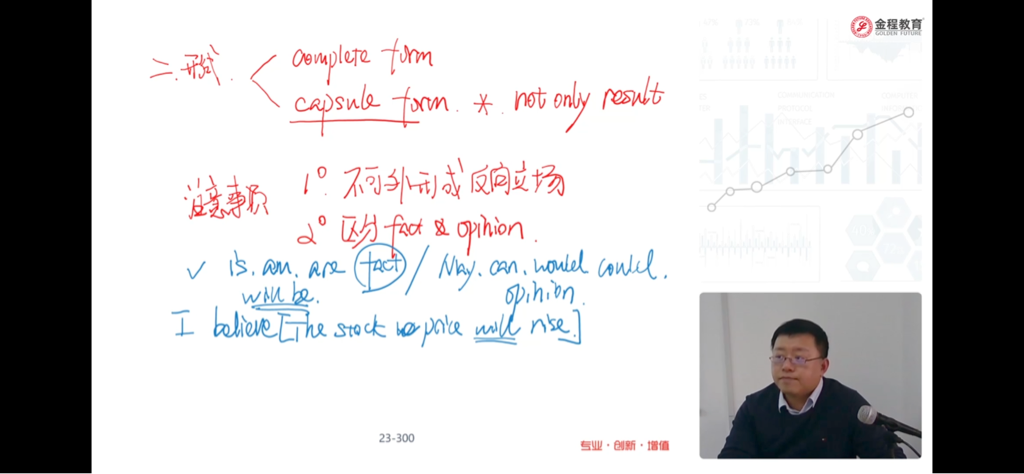 金程教育
GOLDEN FUTURE
二.形式. complete form
capsule form. * not only result
注意事项 1° 不可外形成反向立场
2° 区分 fact & opinion.
✓ is. am. are fact / May. can. would could.
will be. opinion.
I believe [The stock price will rise.]
23-300
专业·创新·增值